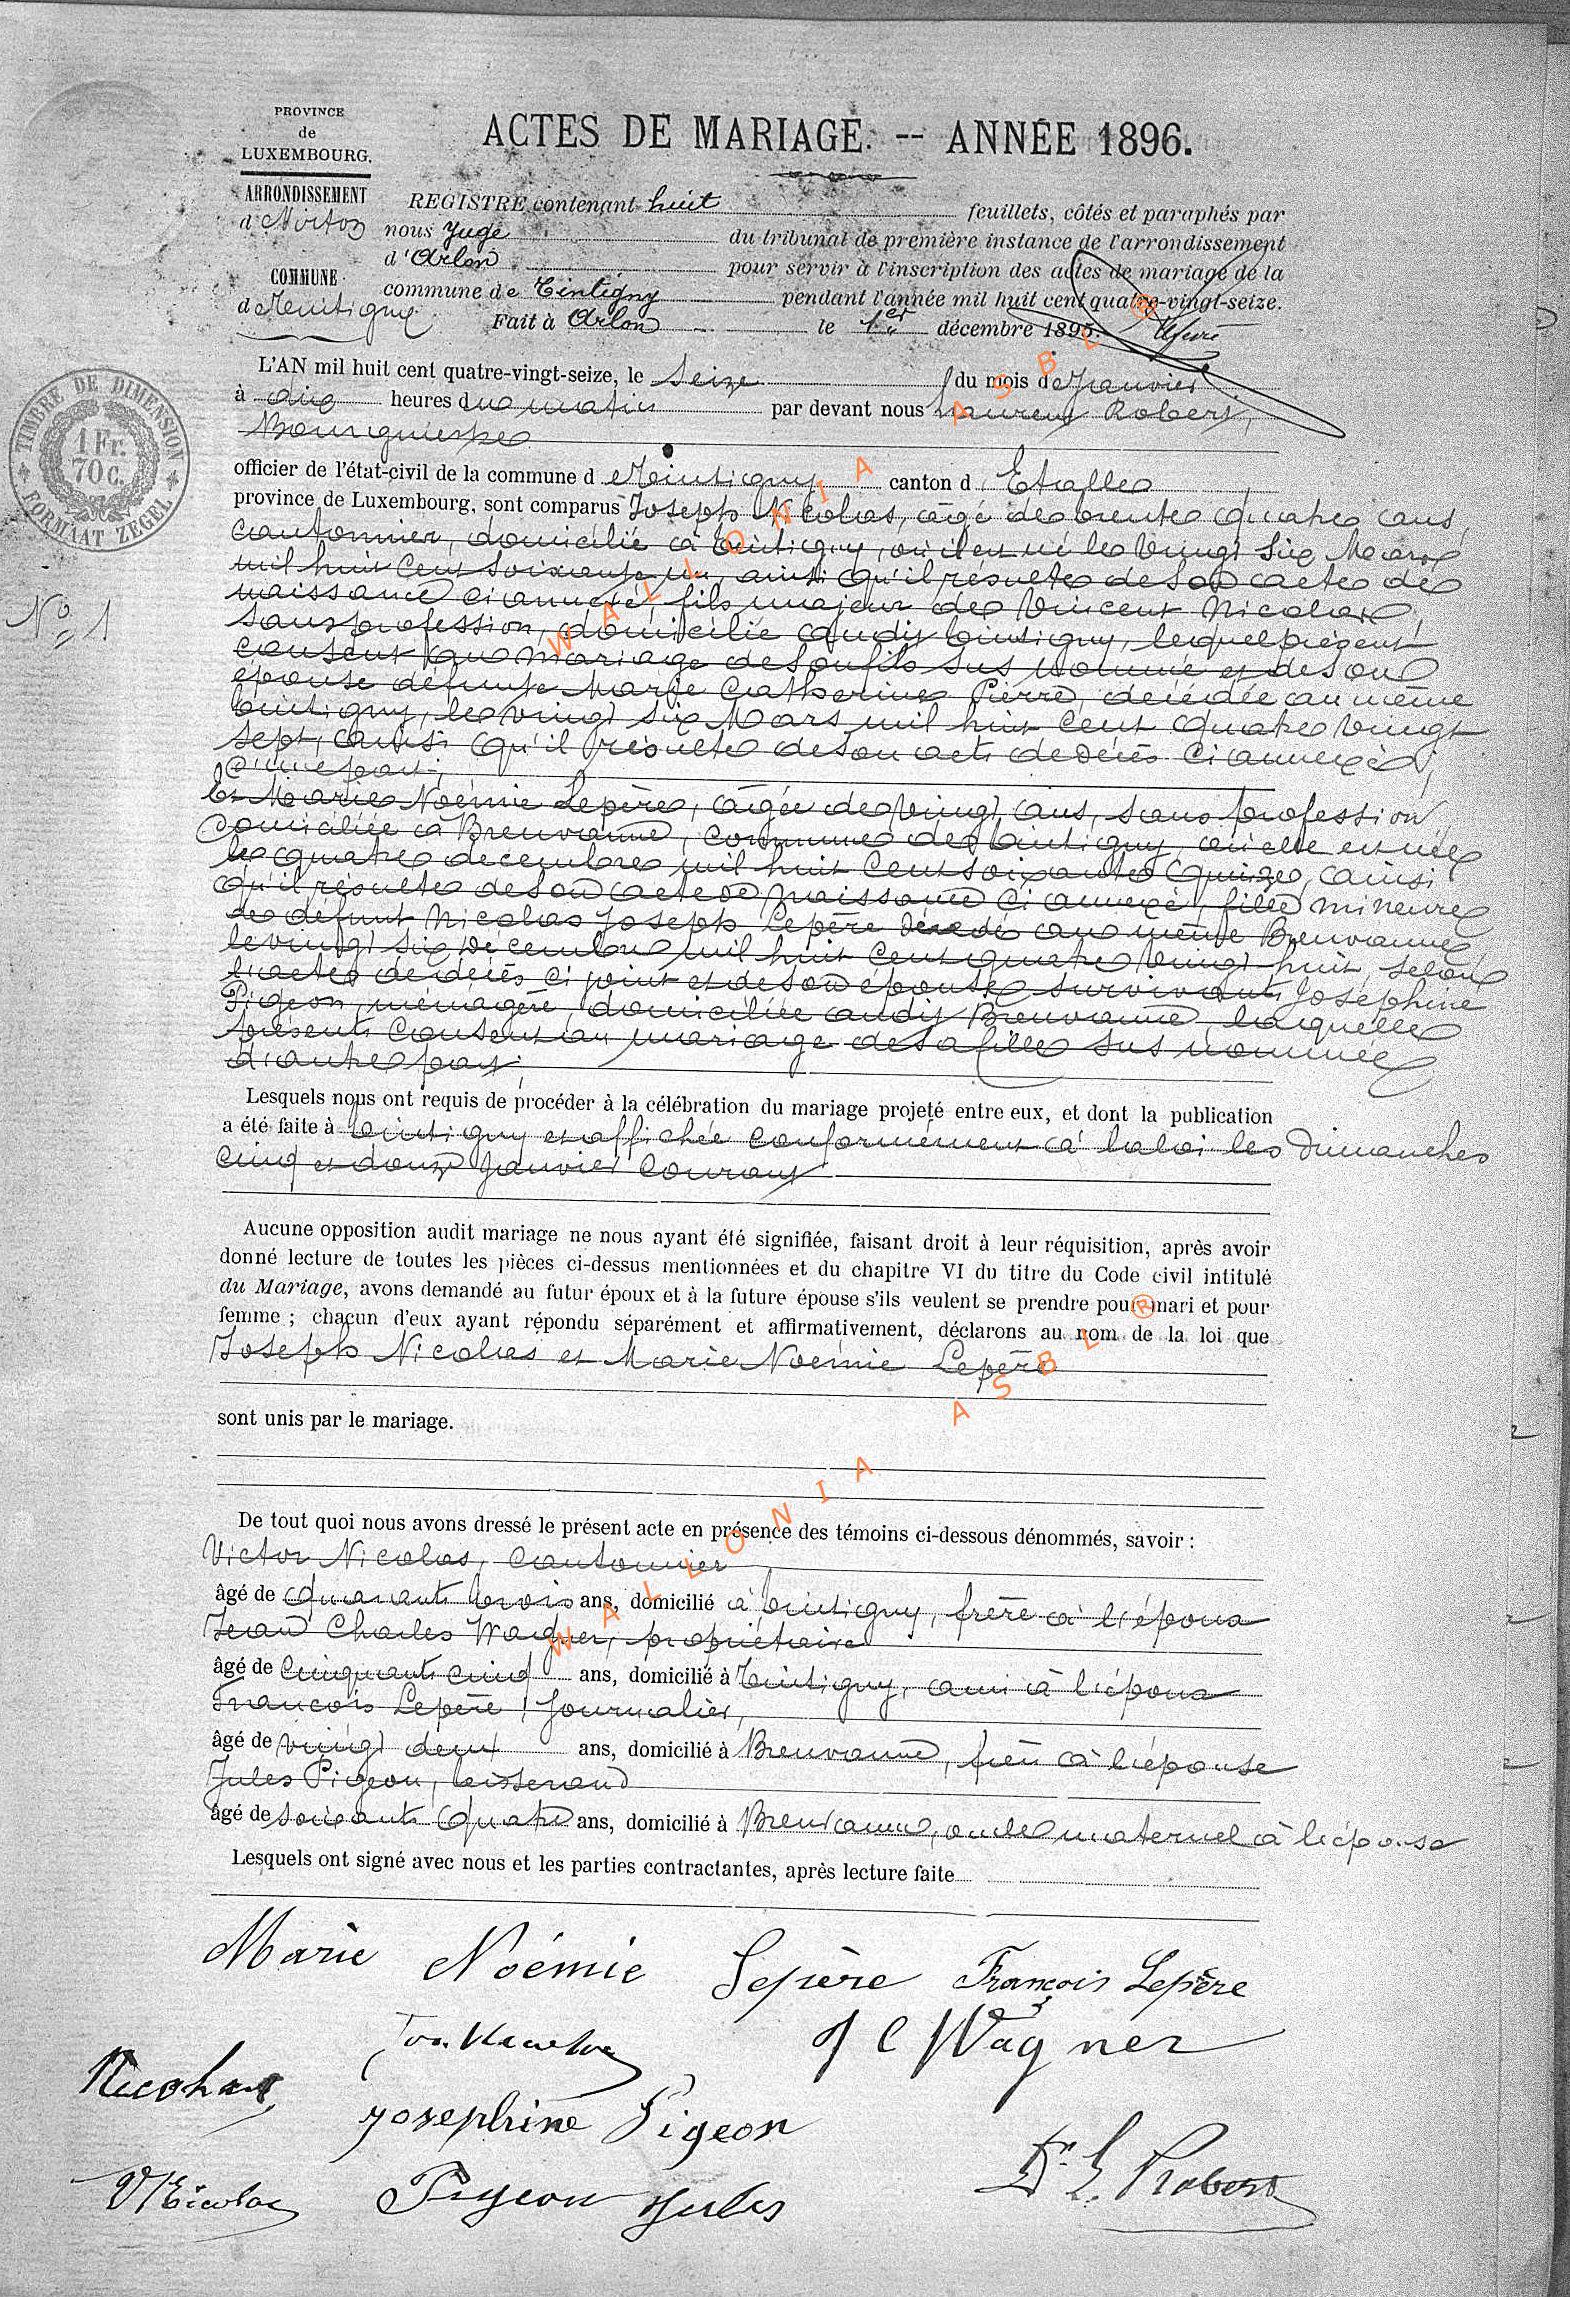 PROVINCE
de
LUXEMBOURG.
ARRONDISSEMENT
d Virton
COMMUNE
de Tintigny
ACTES DE MARIAGE. -- ANNÉE 1896.
REGISTRE contenant huit feuillets, côtés et paraphés par
nous Juge du tribunal de première instance de l'arrondissement
d'Arlon pour servir à l'inscription des actes de mariage de la
commune de Tintigny pendant l'année mil huit cent quatre-vingt-seize.
Fait à Arlon le 1er décembre 1895.
TIMBRE DE DIMENSION
1 Fr.
70 c.
FORMAAT ZEGEL
No 1
L'AN mil huit cent quatre-vingt-seize, le seize du mois de Janvier
à dix heures du matin par devant nous Laurent Robert,
Bourgmestre
officier de l'état-civil de la commune d e Tintigny canton d Etalle
province de Luxembourg, sont comparus Joseph Nicolas, âgé de trente quatre ans
cantonnier, domicilié à Tintigny, où il est né le vingt six Mars
mil huit cent soixante un, ainsi qu'il résulte de son acte de
naissance ci annexé, fils majeur de Vincent Nicolas,
sans profession, domicilié audit Tintigny, lequel présent
consent au mariage de son fils sus nommé et de son
épouse défunte Marie Catherine Pierre, décédée au même
Tintigny, le vingt six Mars mil huit cent quatre vingt
sept, ainsi qu'il résulte de son acte de décès ci annexé,
d'une part;
Et Marie Noémie Lepère, âgée de vingt ans, sans profession
domiciliée à Breuvanne, commune de Tintigny, où elle est née
le quatre décembre mil huit cent soixante quinze, ainsi
qu'il résulte de son acte de naissance ci annexé, fille mineure
de défunt Nicolas Joseph Lepère décédé au même Breuvanne
le vingt six décembre mil huit cent quatre vingt huit, selon
l'acte de décès ci joint et de son épouse survivante Joséphine
Pigeon, ménagère, domiciliée audit Breuvanne, laquelle
présente consent au mariage de sa fille sus nommée
d'autre part;
Lesquels nous ont requis de procéder à la célébration du mariage projeté entre eux, et dont la publication
a été faite à Tintigny et affichée conformément à la loi les dimanches
cinq et douze Janvier courant
Aucune opposition audit mariage ne nous ayant été signifiée, faisant droit à leur réquisition, après avoir
donné lecture de toutes les pièces ci-dessus mentionnées et du chapitre VI du titre du Code civil intitulé
du Mariage, avons demandé au futur époux et à la future épouse s'ils veulent se prendre pour mari et pour
femme ; chacun d'eux ayant répondu séparément et affirmativement, déclarons au nom de la loi que
Joseph Nicolas et Marie Noémie Lepère
sont unis par le mariage.
De tout quoi nous avons dressé le présent acte en présence des témoins ci-dessous dénommés, savoir :
Victor Nicolas, cantonnier
âgé de quarante trois ans, domicilié à Tintigny, frère à l'époux
Jean Charles Wagner, propriétaire
âgé de cinquante cinq ans, domicilié à Tintigny, ami à l'époux
François Lepère, journalier,
âgé de vingt deux ans, domicilié à Breuvanne, frère à l'épouse
Jules Pigeon, tisserand
âgé de soixante quatre ans, domicilié à Breuvanne, oncle maternel à l'épouse
Lesquels ont signé avec nous et les parties contractantes, après lecture faite
Marie Noémie Lepère François Lepère
Jos. Nicolas J C Wagner
Nicolas
Josephine Pigeon
V Nicolas Pigeon Jules Dr L. Robert
WALLONIA ASBL ®
WALLONIA ASBL ®